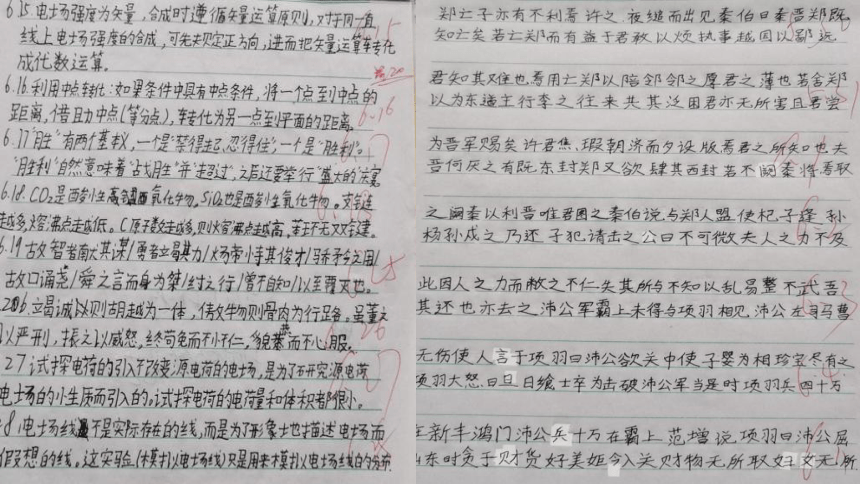 6.15. 电场强度为矢量,合成时遵循矢量运算原则,对于同一直
线上电场强度的合成,可先规定正方向,进而把矢量运算转化
成代数运算。
6.16.利用中点转化:如果条件中具有中点条件,将一个点到中点的
距离,借助中点(等分点),转化为另一点到平面的距离。
6.17"胜"有两个基本义,一个是"禁得起、忍得住",一个是"胜利"。
"胜利"自然意味着"占战胜"并"超过",之后还要举行"盛大的"宴
6.18.CO₂是酸性氧化物,SiO₂也是酸性氧化物。支链
越多,熔沸点越低。C原子数越多,则熔沸点越高,若无双键。
6.19 故智者尽其谋/勇者竭其力/
故口诵尧/舜之言而身为桀/纣之行/曾不自知/以至覆灭也。
竭诚则胡越为一体,傲物则骨肉为行路。虽董之
以严刑,振之以威怒,终苟免而不仁,貌恭而心服。
27试探电荷的引入不改变源电荷的电场,是为了研究源电荷
电场的性质而引入的。试探电荷的电荷量和体积都很小。
8.电场线不是实际存在的线,而是为了形象地描述电场而
假想的线。这实验(模拟电场线)只是用来模拟电场线的分布
郑亡子亦有不利焉许之.夜缒而出见秦伯曰秦晋郑既
知亡矣若亡郑而有益于君敢以烦执事越国以鄙远
君知其难也焉用亡郑以陪邻邻之厚君之薄也若舍郑
以为东道主行李之往来共其乏困君亦无所害且君尝
为晋军赐矣许君焦、瑕朝济而夕设版焉君之所知也夫
晋何厌之有既东封郑又欲肆其西封若不阙秦将焉取
之阙秦以利晋唯君图之秦伯说与郑人盟使杞子逢孙
杨孙戍之乃还子犯请击之公曰不可微夫人之力不及
此因人之力而敝之不仁失其所与不知以乱易整不武吾
其还也亦去之沛公军霸上未得与项羽相见沛公左司马曹
无伤使人言于项羽曰沛公欲关中使子婴为相珍宝尽有之
项羽大怒曰旦日飨士卒为击破沛公军当是时项羽兵四十万
在新丰鸿门沛公兵十万在霸上范增说项羽曰沛公居
山东时贪于财货好美姬今入关财物无所取妇女无所